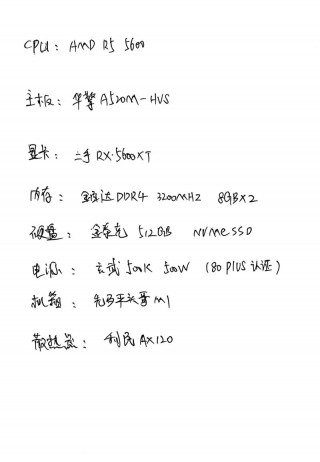 CPU：AMD R5 5600
主板：华擎 A520M-HVS
显卡：二手 RX·5600XT
内存：金百达 DDR4 3200MHz 8GB×2
硬盘：金泰克 512GB NVMe SSD
电源：玄武 500K 500W（80 PLUS 认证）
机箱：先马平头哥 M1
散热器：利民 AX120